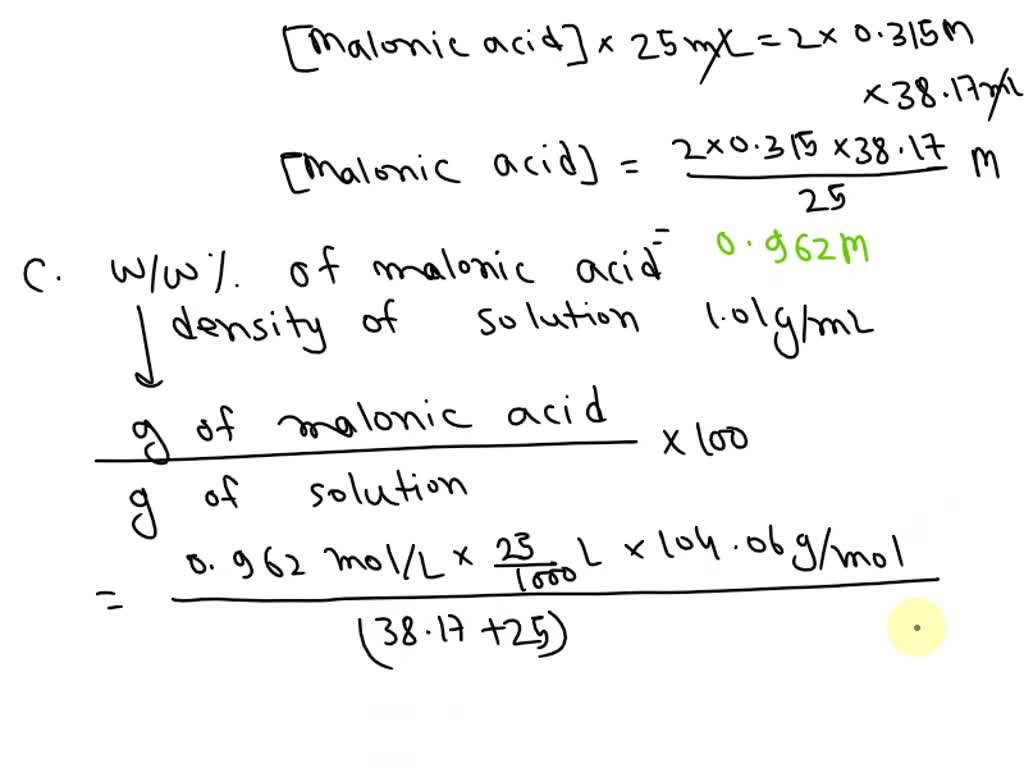 [Malonic acid] × 25 mL = 2 × 0.315 M
× 38.17 mL
[Malonic acid] = 2×0.315×38.17 / 25 M
C. W/W% of malonic acid = 0.962 M
↓ density of solution 1.01 g/mL
g of malonic acid / g of solution × 100
= 0.962 mol/L × 25/1000 L × 104.06 g/mol / (38.17 + 25)